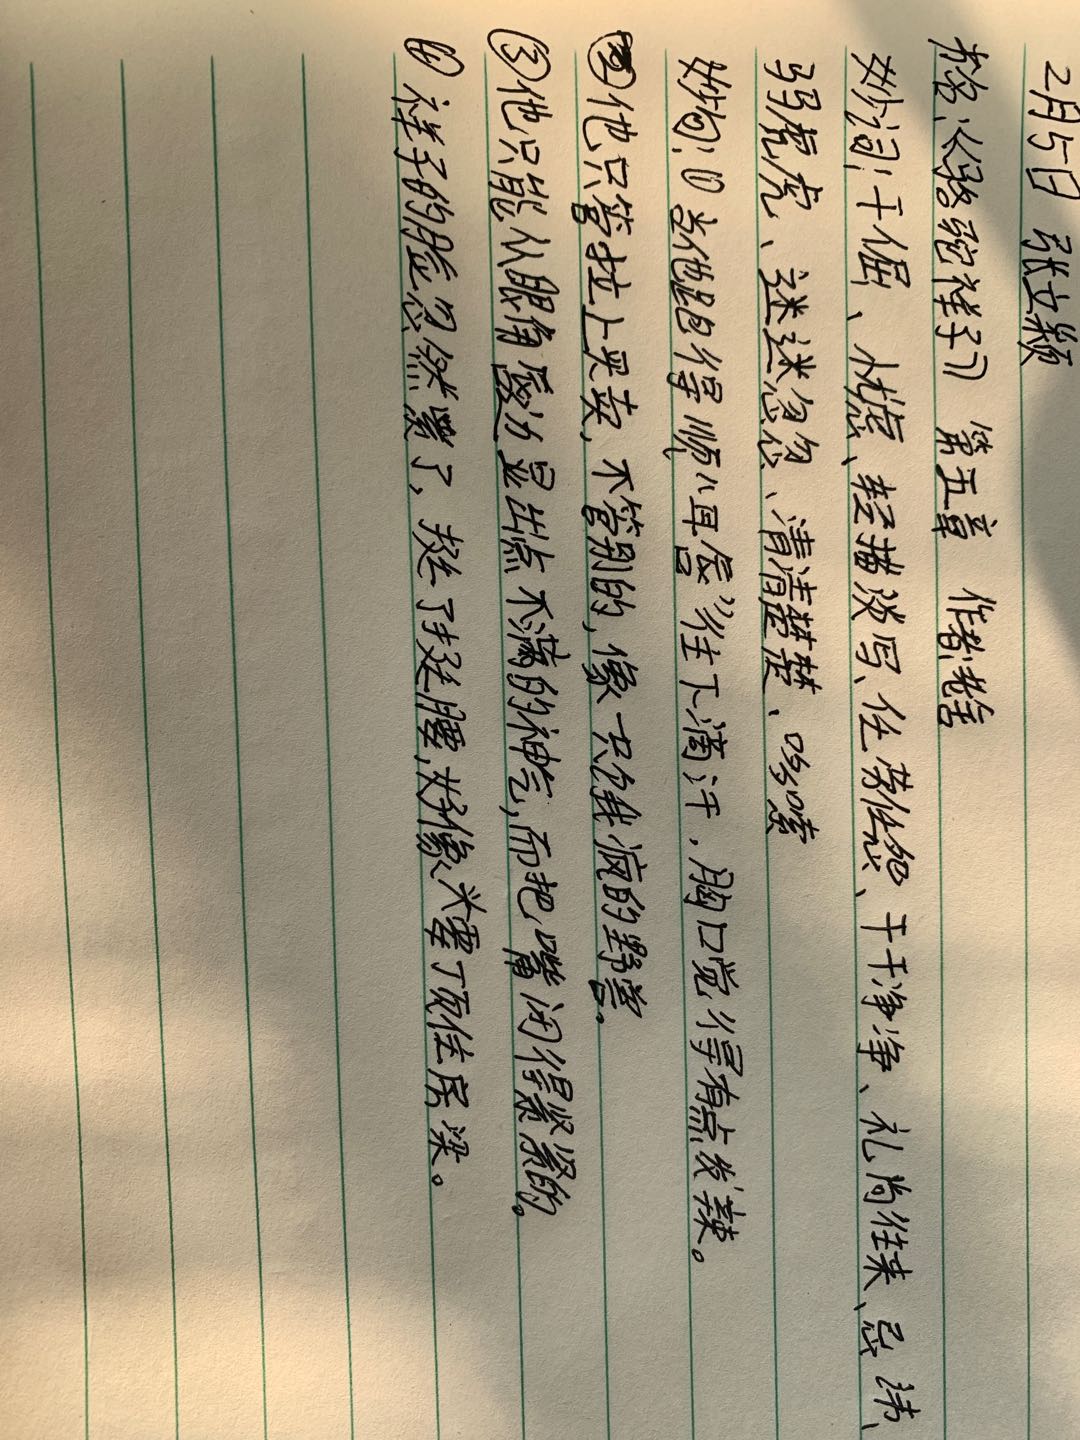 2月5日 张立颖
书名:《骆驼祥子》 第五章 作者:老舍
妙词:干倔、忧虑、轻描淡写、任劳任怨、干干净净、礼尚往来、忌讳、
马虎虎、迷迷忽忽、清清楚楚、哆嗦
妙句:① 当他跑得顺“耳唇”往下滴汗,胸口觉得有点发辣。
②他只管拉上买卖,不管别的,像一只饿疯的野兽。
③他只能从眼角边显出点不满的神气,而把嘴闭得紧紧的。
④祥子的脸忽然紫了,挺了挺腰,好像头要顶住房梁。